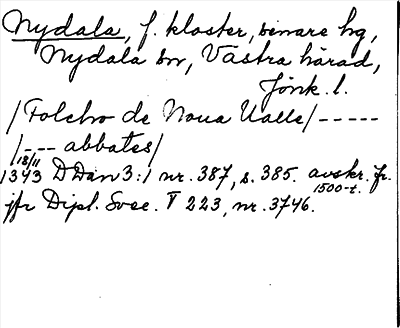 Nydala, f. kloster, senare hg,
Nydala sn, Västra härad,
Jönk. l.
/Folcho de Noua Ualle/-----
/--- abbates/
18/11
1343 DDan 3:1 nr. 387, s. 385. avskr. fr.
1500-t.
jfr Dipl. Svec. V 223, nr. 3746.